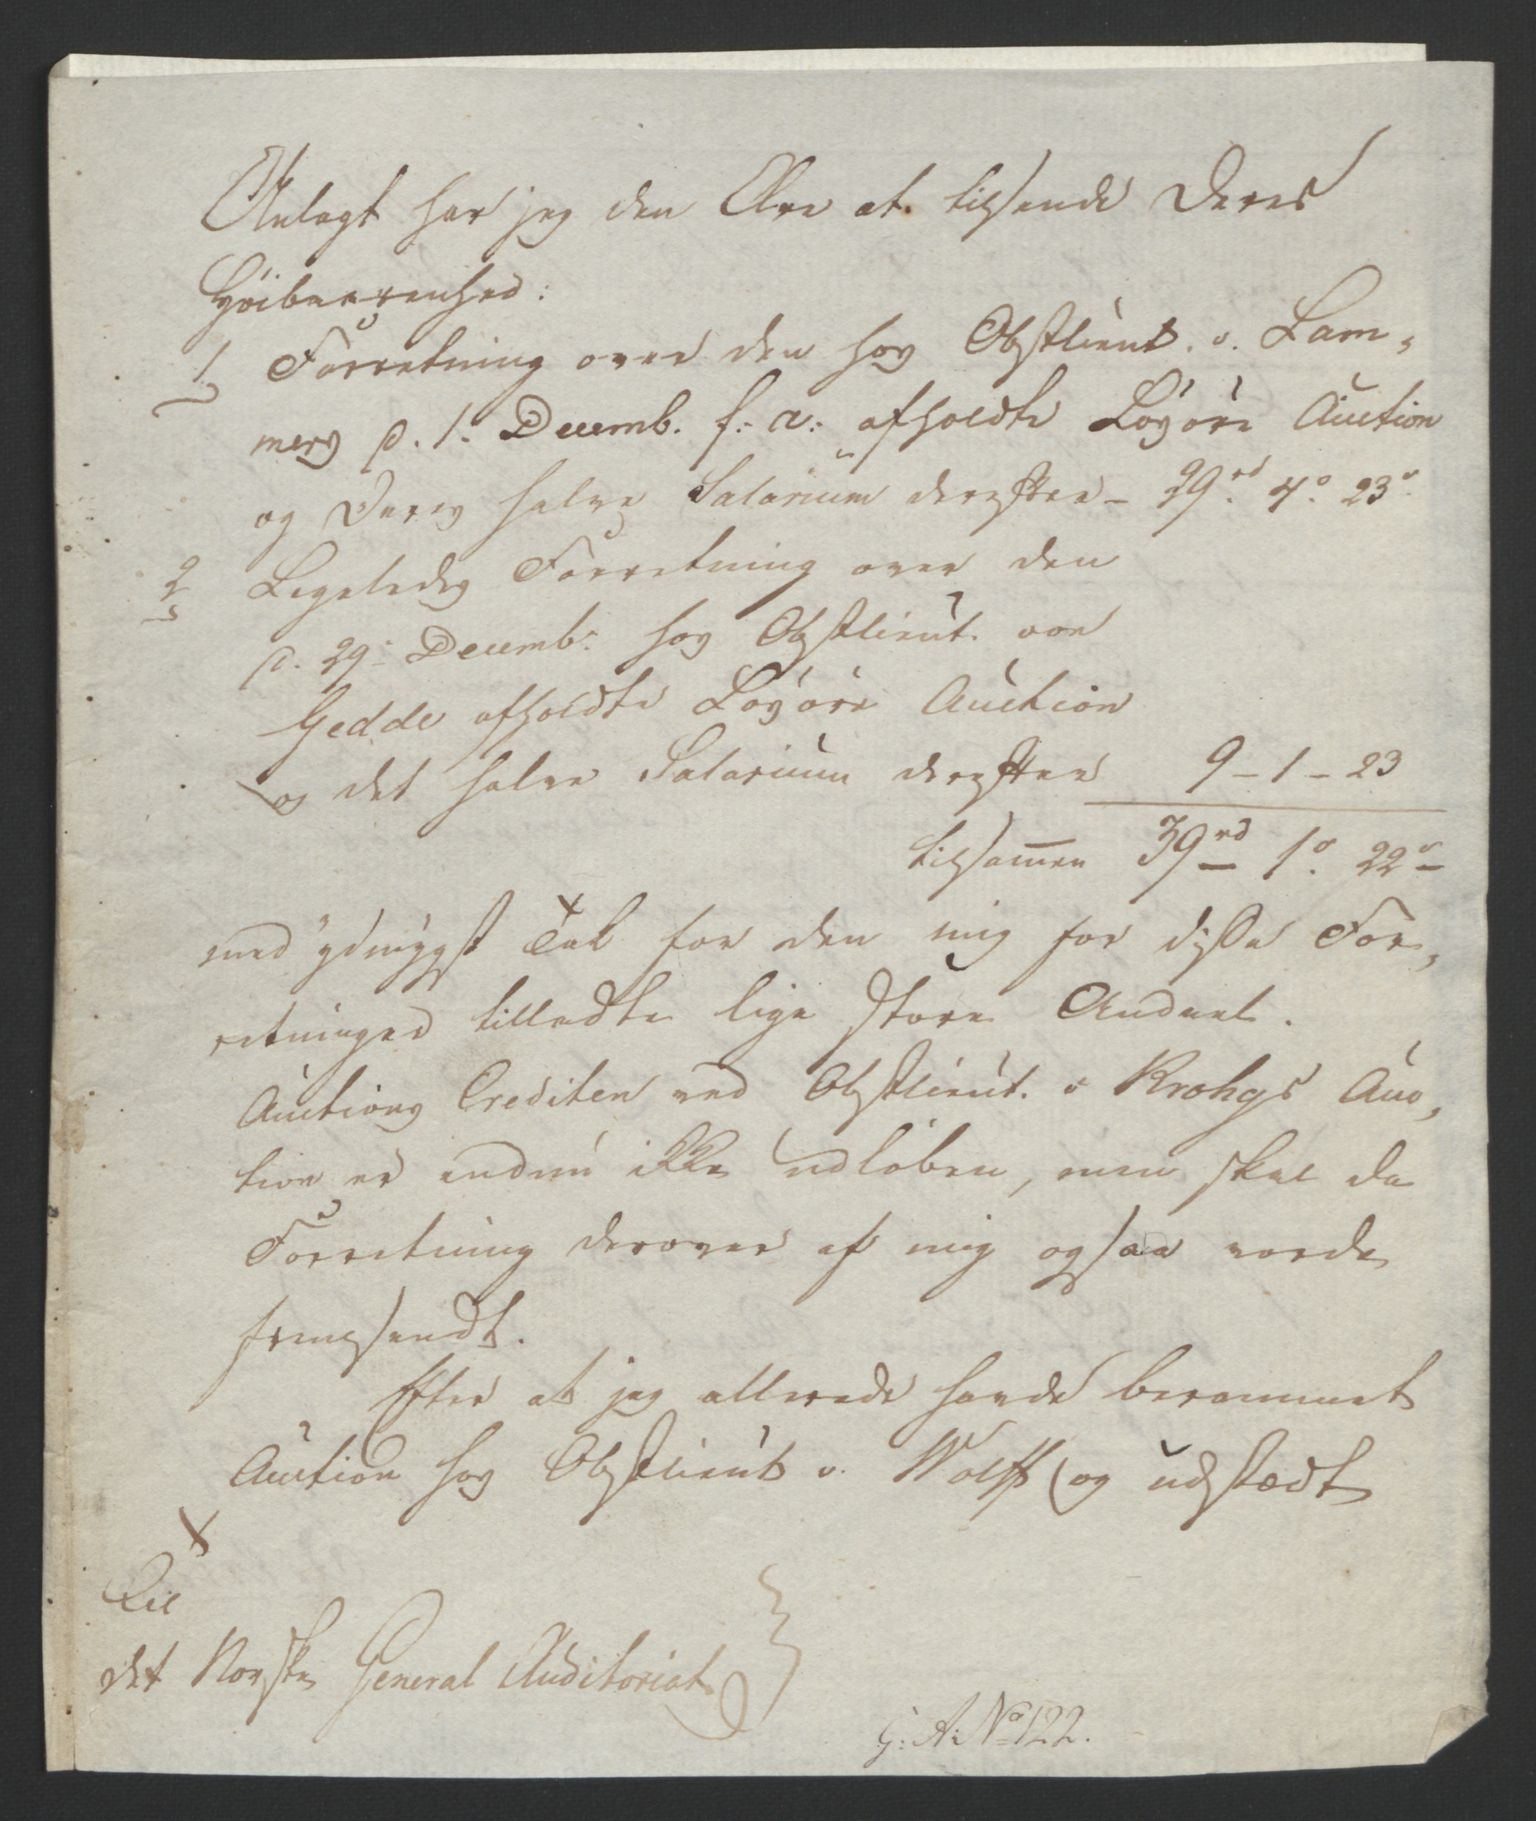 Anlagt har jeg den Ære at tilsende Deres
Høibaarenhed:
1 Forretning over den hos Obstlieut. v. Lam-
mers d. 1. Decemb. f: a: afholdte Løsøre Auction
og Deres halve Salarium derefter - 29rd 4o 23o
2 Ligeledes Forretning over den
d. 29 Decemb: hos Obstlieut. von
Gedde afholdte Løsøre Auction
og det halve Salarium derefter 9 - 1 - 23
tilsammen 39rd 1o 22o
med ydmygst Tak for den mig for disse For-
retninger tilladte lige store Andeel.
Auctions Crediten ved Obstlieut. v Krohgs Auc-
tion er endnu ikke udløben, men skal da
Forretning derover af mig ogsaa vorde
fremsendt.
Efter at jeg allerede havde berammet
Auction hos Obstlieut v. Wolff (og udstædt
Til
det Norske General Auditoriat
G: A: No 122.